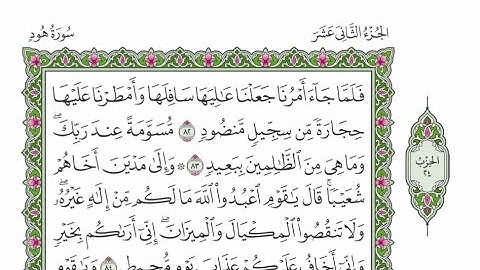 الجُزْءُ الثَّانِي عَشَرَ
سُورَةُ هُودٍ
فَلَمَّا جَآءَ أَمْرُنَا جَعَلْنَا عَٰلِيَهَا سَافِلَهَا وَأَمْطَرْنَا عَلَيْهَا
حِجَارَةً مِّن سِجِّيلٍ مَّنضُودٍ ٨٢ مُّسَوَّمَةً عِندَ رَبِّكَۖ
وَمَا هِيَ مِنَ ٱلظَّٰلِمِينَ بِبَعِيدٍ ٨٣ ۞ وَإِلَىٰ مَدْيَنَ أَخَاهُمْ
شُعَيْبًاۚ قَالَ يَٰقَوْمِ ٱعْبُدُوا۟ ٱللَّهَ مَا لَكُم مِّنْ إِلَٰهٍ غَيْرُهُۥۖ
وَلَا تَنقُصُوا۟ ٱلْمِكْيَالَ وَٱلْمِيزَانَۖ إِنِّىٓ أَرَىٰكُم بِخَيْرٍ
وَإِنِّىٓ أَخَافُ عَلَيْكُمْ عَذَابَ يَوْمٍ مُّحِيطٍ ٨٤ وَيَٰقَوْمِ
الحِزْبُ
٢٤